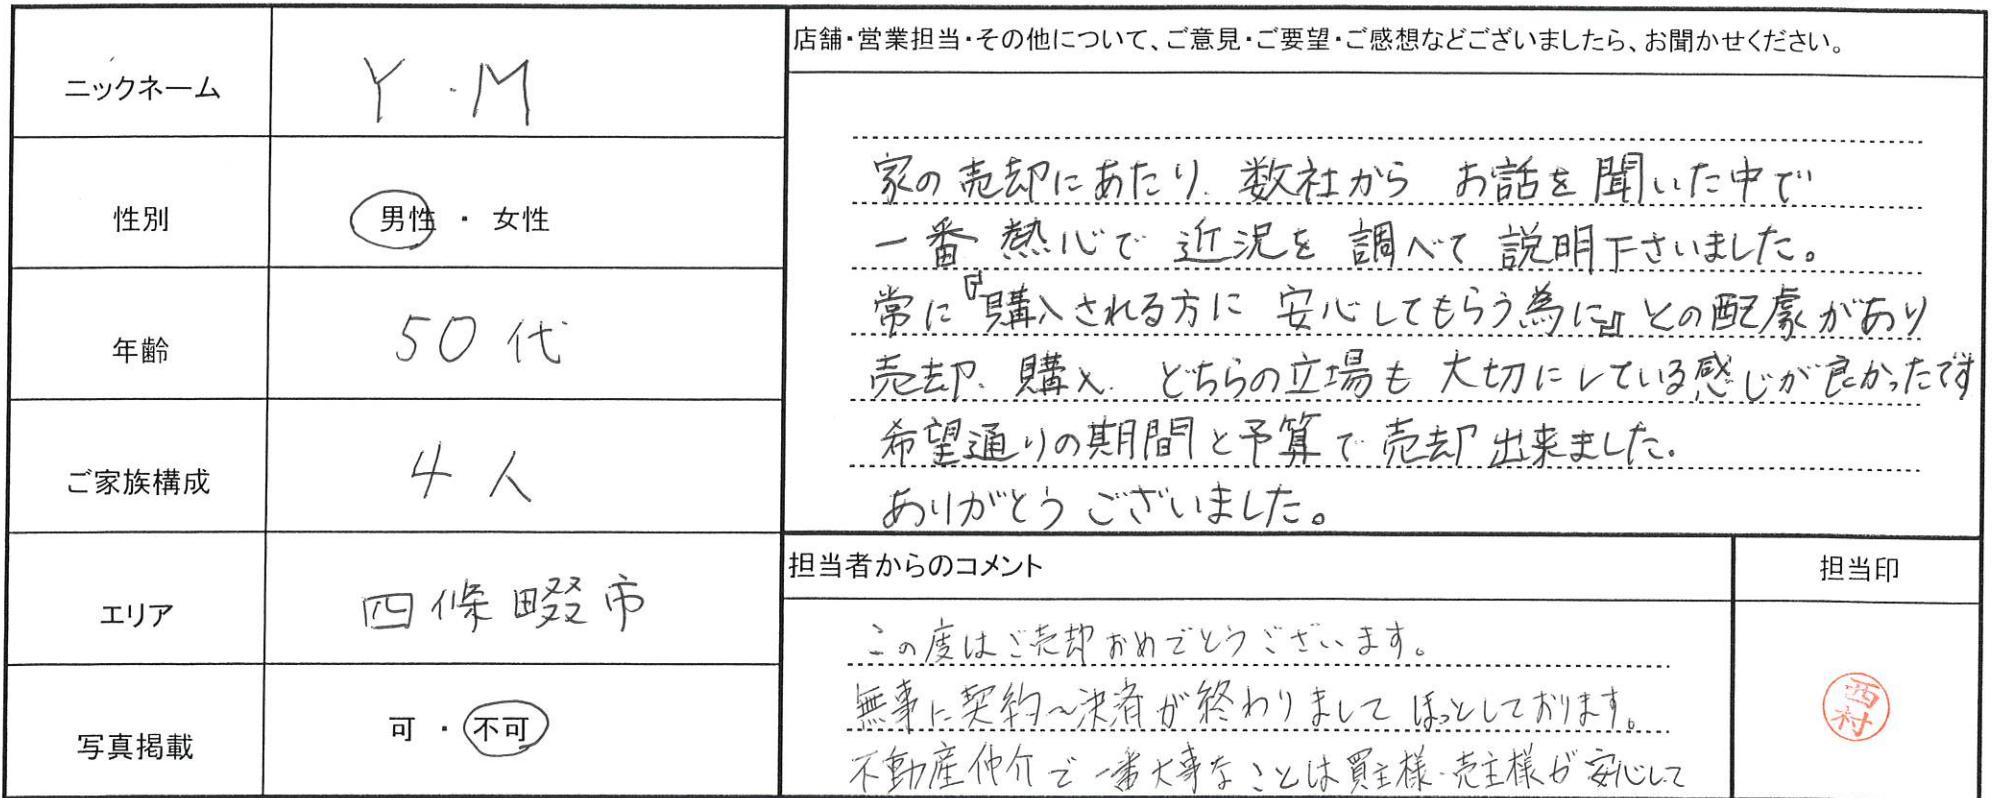 ニックネーム
Y・M
性別
男性 ・ 女性
年齢
50代
ご家族構成
4人
エリア
四條畷市
写真掲載
可 ・ 不可
店舗・営業担当・その他について、ご意見・ご要望・ご感想などございましたら、お聞かせください。
家の売却にあたり、数社から お話を聞いた中で
一番 熱心で 近況を 調べて 説明下さいました。
常に『購入される方に 安心してもらう為に』との配慮があり
売却、購入、どちらの立場も 大切にしている感じが良かったです
希望通りの期間と予算で 売却出来ました。
ありがとう ございました。
担当者からのコメント
この度はご売却おめでとうございます。
無事に契約〜決済が終わりまして ほっとしております。
不動産仲介で一番大事なことは買主様・売主様が安心して
担当印
西村